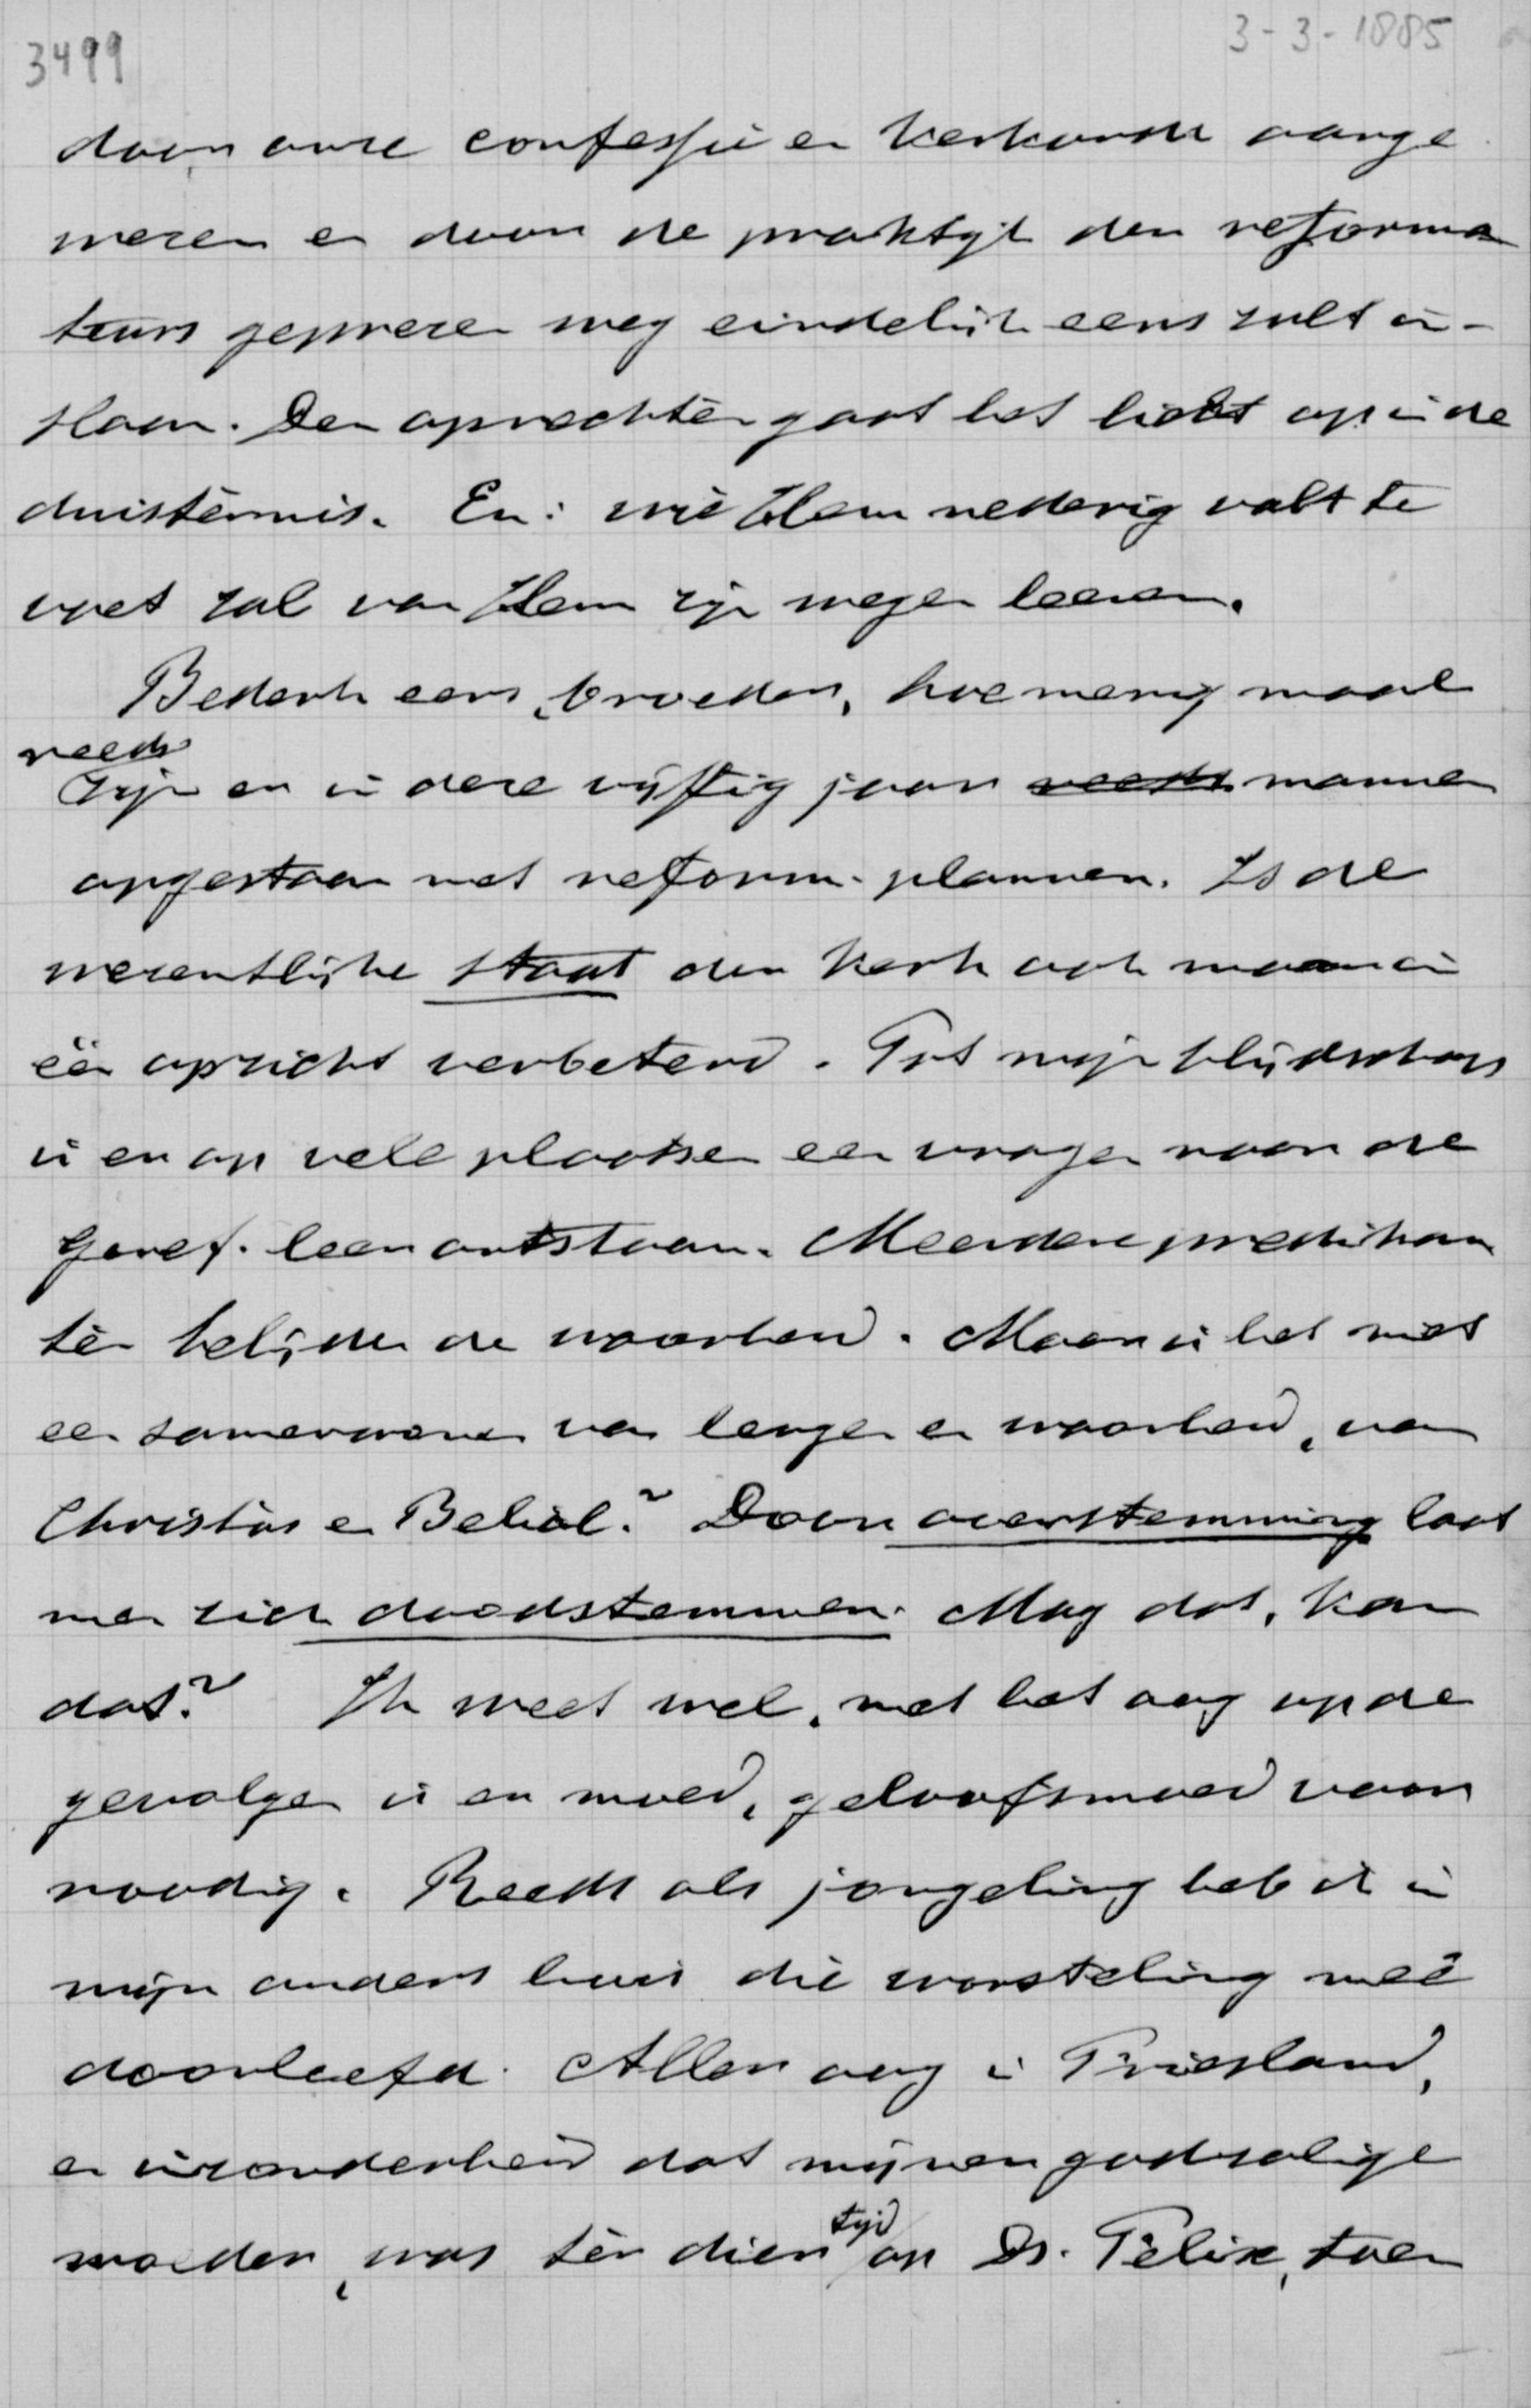 3499
3-3-1885
door onze confessie en kerkorde aange
wezen en door de praktijk der reforma
teurs geprezen weg eindelijk eens zult in-
slaan. Den oprechten gaat het licht op in de
duisternis. En: wie Hem nederig valt te
voet zal van Hem zijn wegen leeren.
Bedenk eens, broeder, hoe menig maal
reeds
zijn er in deze vijftig jaar reeds mannen
opgestaan met reform-plannen. Is de
wezentlijke staat der Kerk ook maar in
één opzicht verbeterd. Tot mijn blijdschap
is er op vele plaatsen een vragen naar de
Geref. leer ontstaan. Meerdere predikan
ten belijden de waarheid. Maar is het niet
een samenwonen van leugen en waarheid, van
Christus en Belial? Door overstemming laat
men zich doodstemmen. Mag dat, kan
dat? Ik weet wel, met het oog op de
gevolgen is er moed, geloofsmoed voor
noodig. Reeds als jongeling heb ik in
mijn ouders huis die worsteling meê
doorleefd. Aller oog in Friesland,
en inzonderheid dat mijner godzalige
moeder, was ten dien tijd op Ds. Felix, toen